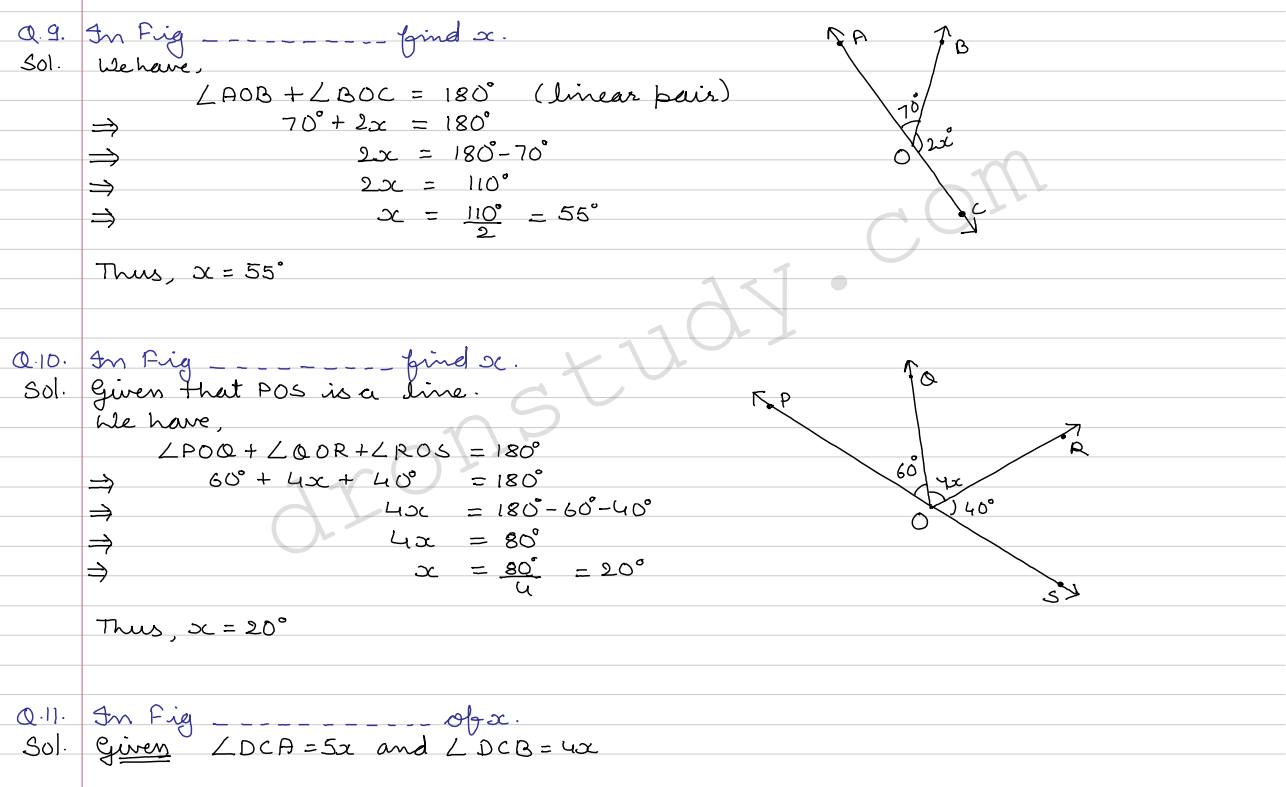 Q.9. In Fig ---------- find x.
Sol. We have,
∠AOB + ∠BOC = 180° (linear pair)
⇒ 70° + 2x = 180°
⇒ 2x = 180° - 70°
⇒ 2x = 110°
⇒ x = 110°/2 = 55°
Thus, x = 55°
A
B
70°
2x°
O
C
Q.10. In Fig ---------- find x.
Sol. Given that POS is a line.
We have,
∠POQ + ∠QOR + ∠ROS = 180°
⇒ 60° + 4x + 40° = 180°
⇒ 4x = 180° - 60° - 40°
⇒ 4x = 80°
⇒ x = 80°/4 = 20°
Thus, x = 20°
P
Q
R
60°
4x
40°
O
S
Q.11. In Fig ------------ of x.
Sol. Given ∠DCA = 5x and ∠DCB = 4x
dronstudy.com